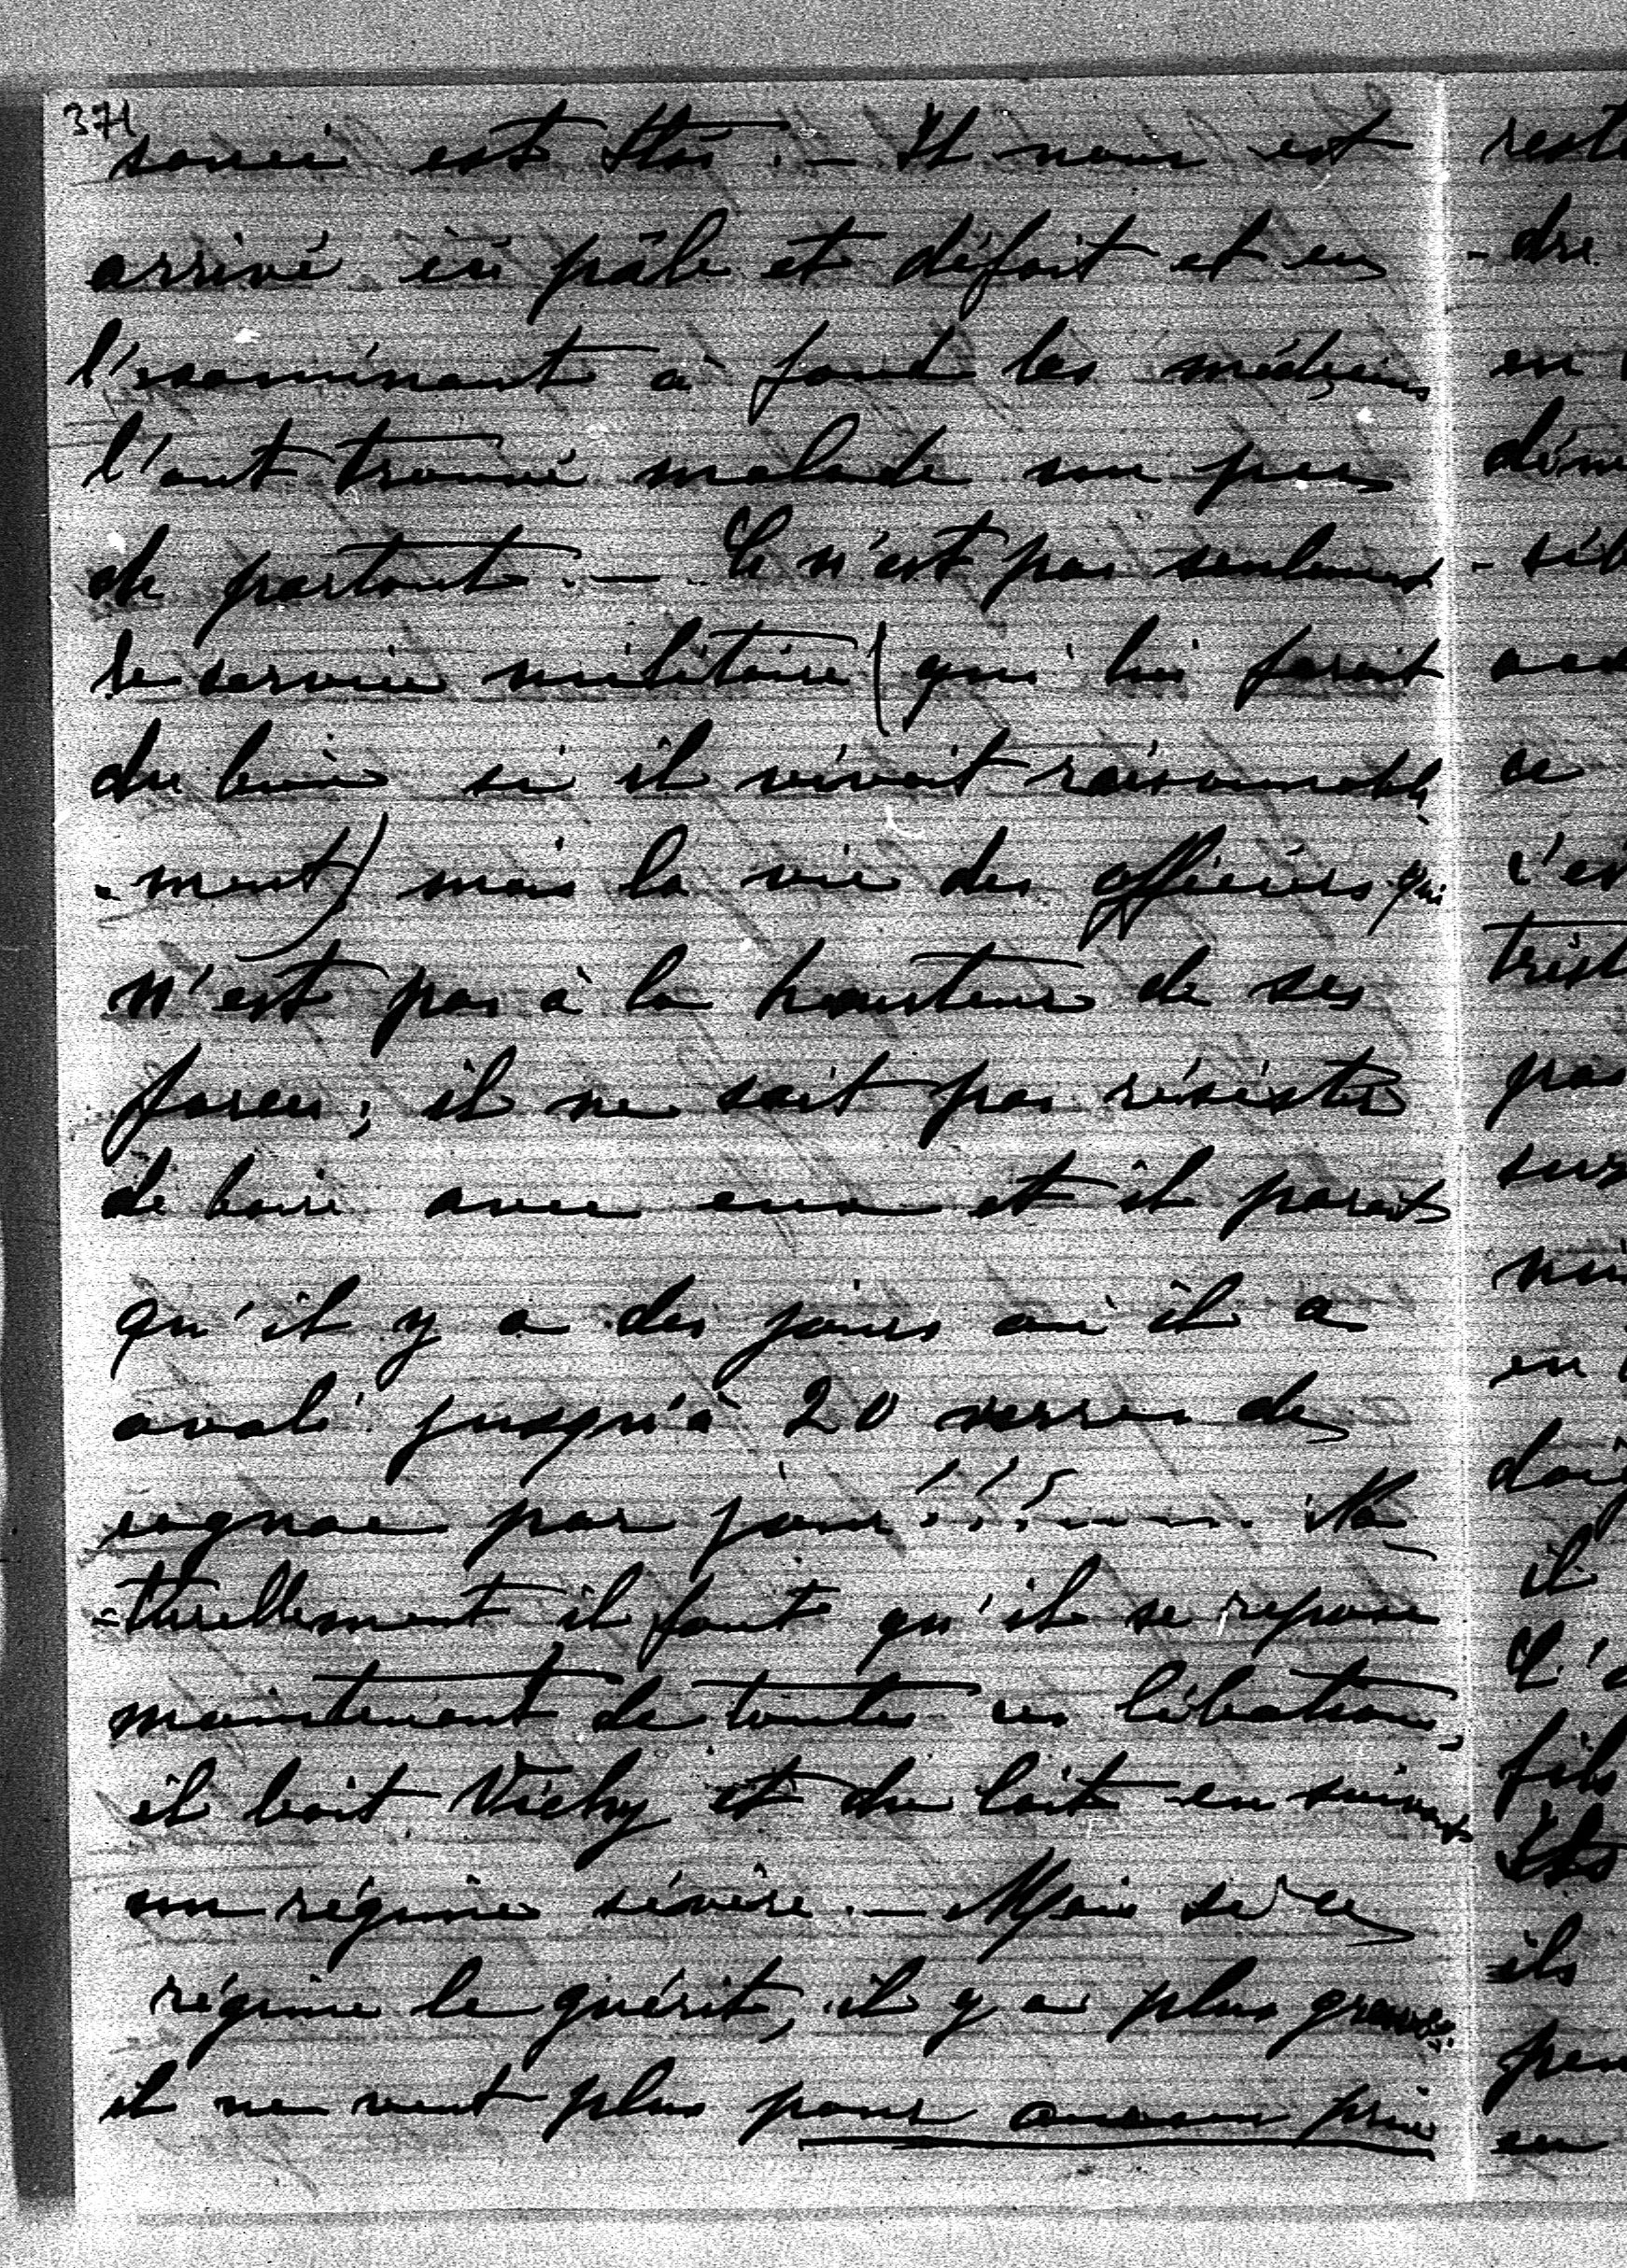 371
souci est Ito. — Il nous est
arrivé ici pâle et défait et en
l'examinant à fond les médecins
l'ont trouvé malade un peu
de partout. — Ce n'est pas seulement
le service militaire (qui lui ferait
du bien si il vivait raisonnable
-ment) mais la vie des officiers qui
n'est pas à la hauteur de ses
forces; il ne sait pas résister
de boire avec eux et il parait
qu'il y a des jours où il a
avalé jusqu'à 20 verres de
cognac par jour!!!..... Na
-turellement il faut qu'il se repose
maintenant de toutes ces libations,
il boit Vichy et du lait en suivant
un régime sévère. — Mais si ce
régime le guérit, il y a plus grave:
il ne veut plus pour aucun prix